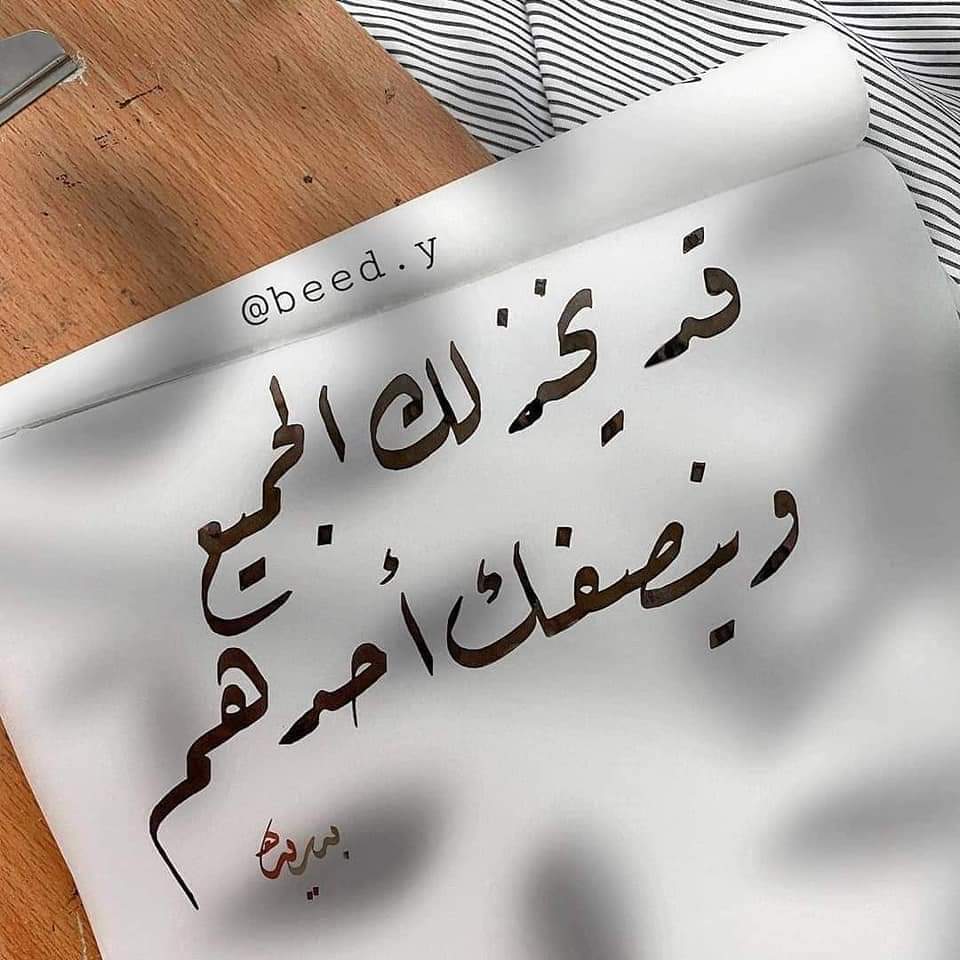 @beed.y
قد يخذلك الجميع
وينصفك أحدهم